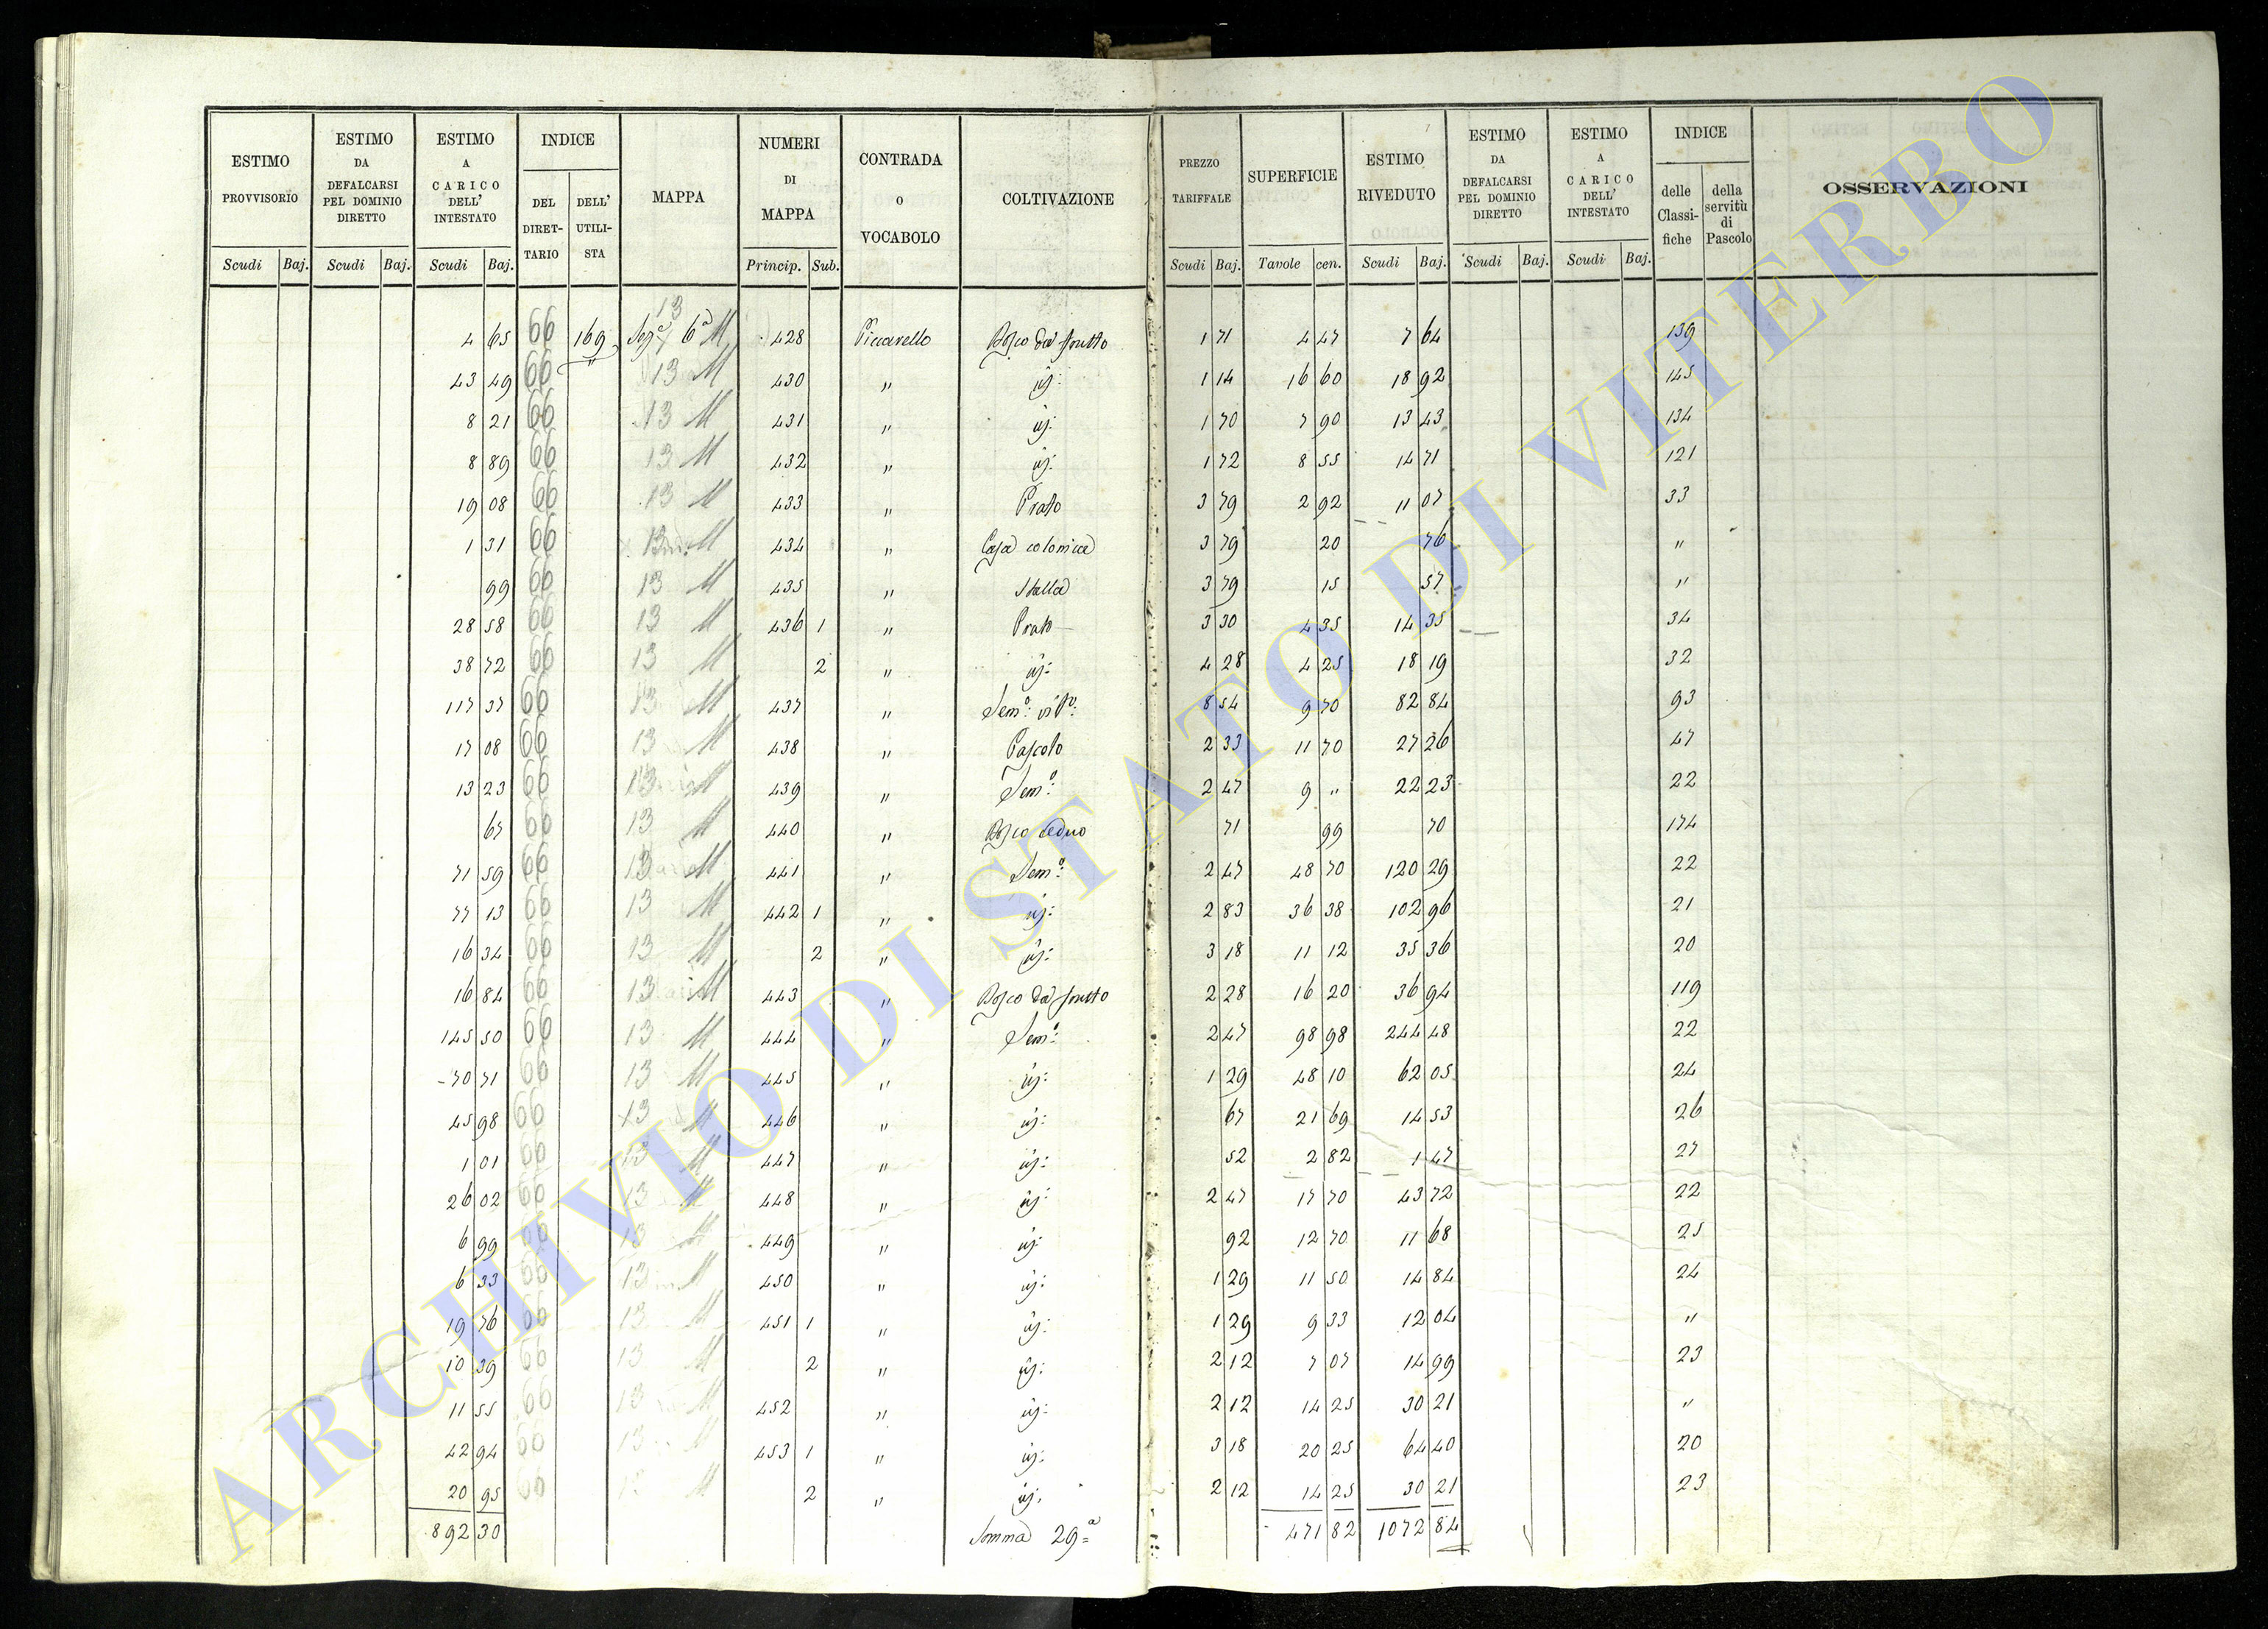 ESTIMO PROVVISORIO | ESTIMO DA DEFALCARSI PEL DOMINIO DIRETTO | ESTIMO A CARICO DELL' INTESTATO | INDICE DEL DIRETTARIO | DELL' UTILISTA | MAPPA | NUMERI DI MAPPA | CONTRADA o VOCABOLO | COLTIVAZIONE | PREZZO TARIFFALE | SUPERFICIE | ESTIMO RIVEDUTO | ESTIMO DA DEFALCARSI PEL DOMINIO DIRETTO | ESTIMO A CARICO DELL' INTESTATO | INDICE delle Classifiche | della servitù di Pascolo | OSSERVAZIONI
Scudi Baj. | Scudi Baj. | Scudi Baj. | Princip. Sub. | Scudi Baj. | Tavole cen. | Scudi Baj. | Scudi Baj. | Scudi Baj.
4 65 66 169 13 6ª M 428 Piccarello Bosco da frutto 1 71 4 47 7 64 139
43 49 66 " 13 M 430 " id: 1 14 16 60 18 92 145
8 21 66 13 M 431 " id: 1 70 7 90 13 43 134
8 89 66 13 M 432 " id: 1 72 8 55 14 71 121
19 08 66 13 M 433 " Prato 3 79 2 92 11 07 33
1 31 66 13 M 434 " Casa colonica 3 79 20 76 "
99 66 13 M 435 " Stalla 3 79 15 57 "
28 58 66 13 M 436 1 " Prato 3 30 4 35 14 35 34
38 72 66 13 M 2 " id: 4 28 4 25 18 19 32
117 37 66 13 M 437 " Semº: vitº: 8 54 9 70 82 84 93
17 08 66 13 M 438 " Pascolo 2 33 11 70 27 26 47
13 23 66 13 M 439 " Semº: 2 47 9 " 22 23 22
67 66 13 M 440 " Bosco ceduo 71 99 70 174
71 59 66 13 M 441 " Semº: 2 47 48 70 120 29 22
77 13 66 13 M 442 1 " id: 2 83 36 38 102 96 21
16 34 66 13 M 2 " id: 3 18 11 12 35 36 20
16 84 66 13 M 443 " Bosco da frutto 2 28 16 20 36 94 119
145 50 66 13 M 444 " Semº: 2 47 98 98 244 48 22
70 71 66 13 M 445 " id: 1 29 48 10 62 05 24
45 98 66 13 M 446 " id: 67 21 69 14 53 26
1 01 66 13 M 447 " id: 52 2 82 1 47 27
26 02 66 13 M 448 " id: 2 47 17 70 43 72 22
6 99 66 13 M 449 " id: 92 12 70 11 68 25
6 33 66 13 M 450 " id: 1 29 11 50 14 84 24
19 76 66 13 M 451 1 " id: 1 29 9 33 12 04 "
10 39 66 13 M 2 " id: 2 12 7 07 14 99 23
11 55 66 13 M 452 " id: 2 12 14 25 30 21 "
42 94 66 13 M 453 1 " id: 3 18 20 25 64 40 20
20 95 66 13 M 2 " id: 2 12 14 25 30 21 23
892 30 Somma 29ª 471 82 1072 84
ARCHIVIO DI STATO DI VITERBO